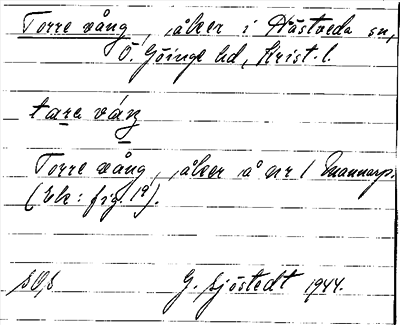 Torre vång, åker i Hästveda sn,
Ö. Göinge hd, Krist. l.
tare váŋ
Torre vång, åker å nr 1 Mannarp.
(Ek: fig. 19).
G. Sjöstedt 1944.